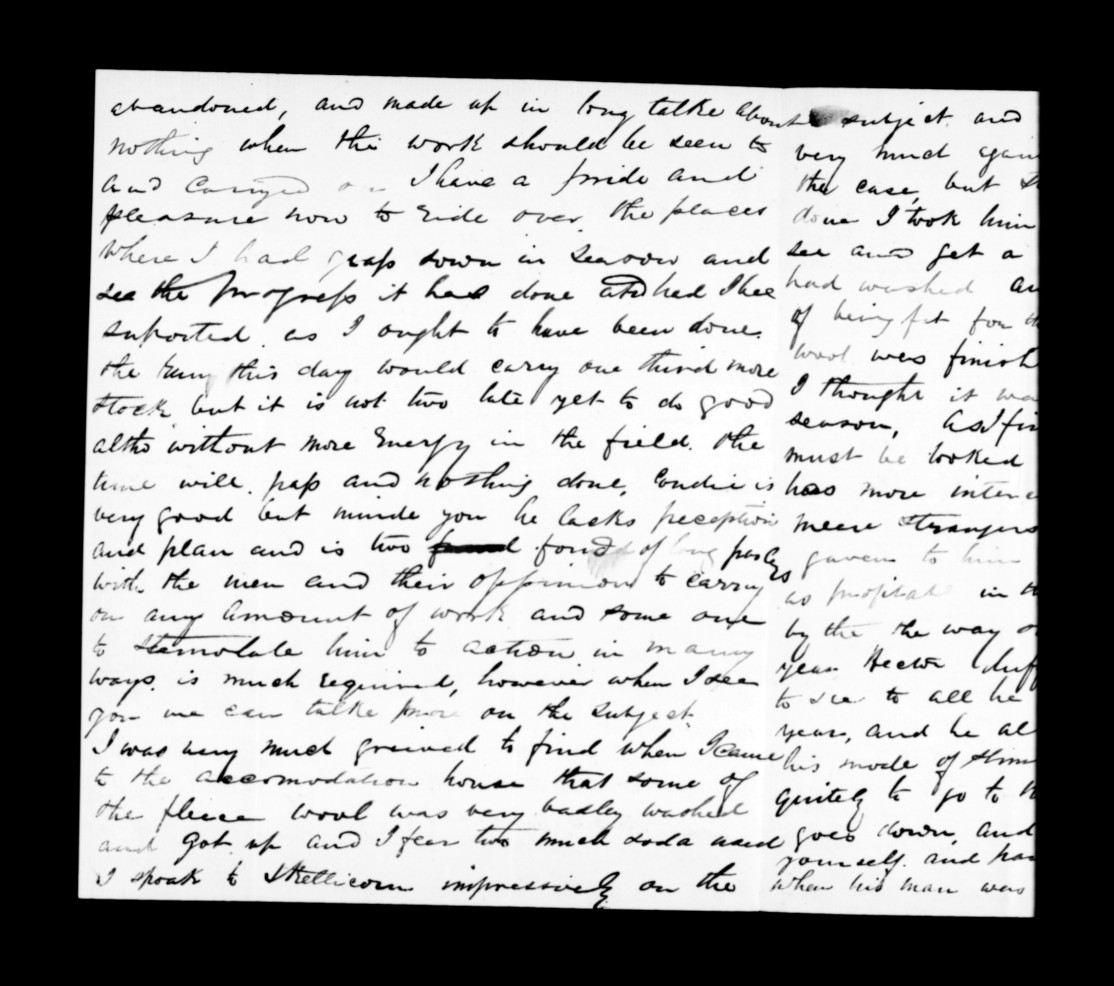 abandoned, and made up in long talke about
nothing when the work should be seen to
and carryed on I have a pride and
pleasure now to ride over the places
where I had grass sown in season and
see the progress it has done and had I bee
suported as I ought to have been done
the run this day would carry one third more
stock but it is not two late yet to do good
altho without more Energy in the field. the
time will pass and nothing done, Condie is
very good but minde you he lacks preception
and plan and is two fond of long
with the men and their oppinion to carry
on any amount of work and some one
to stemolate him to action in many
ways. is much required, however when I see
you we can talke more on the subject.
I was very much greived to find when I came
to the accomodation house that some of
the fleece wool was very badley washed
and got up and I fear two much soda used
I spoak to Skellicorn impressively on the
subject and
very much again
the case, but
done I took him
see and get a
had washed an
of being fit for
wool was finish
I thought it wa
season, As I fin
must be looked
has more inter
meere strangers
gaven to him
as profital in
by the the way
year Hector duff
to see to all he
year, and he al
his mode of
quitely to go to
goes down, and
yourself. and
when his man was